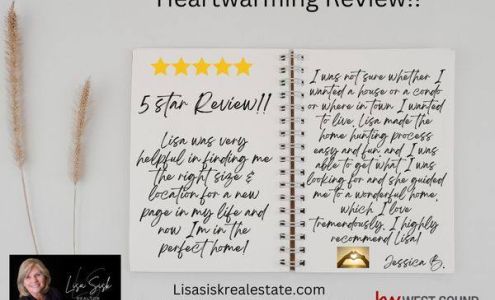 Heartwarming Review!!
5 star Review!!
Lisa was very
helpful in finding me
the right size &
location for a new
page in my life and
now I'm in the
perfect home!
I was not sure whether I
wanted a house or a condo
or where in town I wanted
to live. Lisa made the
home hunting process
easy and fun, and I was
able to get what I was
looking for and she guided
me to a wonderful home,
which I love
tremendously. I highly
recommend Lisa!
Jessica B.
Lisa Sisk
REALTOR
Lisasiskrealestate.com
kw WEST SOUND